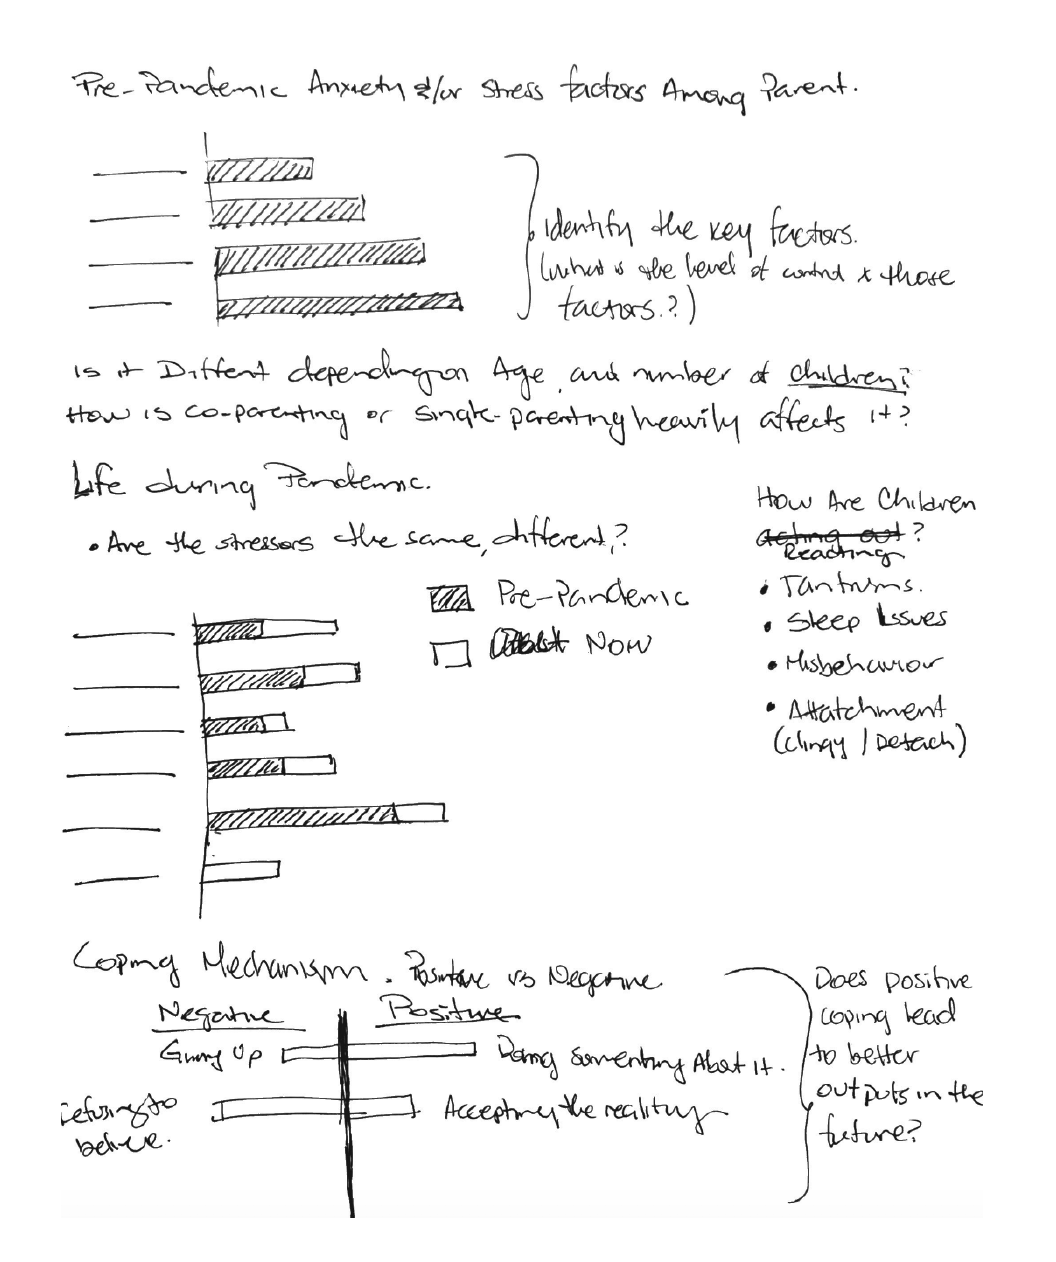 Pre-Pandemic Anxiety &/or Stress factors Among Parent.
Identify the key factors.
(What is the level of control x those
factors.?)
Is it Diffent depending on Age and number of children?
How is co-parenting or single-parenting heavily affects it?
Life during Pandemic.
• Are the stressors the same, different,?
Pre-Pandemic
Now
How Are Children
acting out?
Reacting
• Tantrums.
• Sleep Issues
• Misbehaviour
• Attatchment
(clingy / Detach)
Coping Mechanism. Positive vs Negative
Negative
Positive
Giving Up
Doing something About it.
Refusing to
believe.
Accepting the reality
Does positive
coping lead
to better
outputs in the
future?